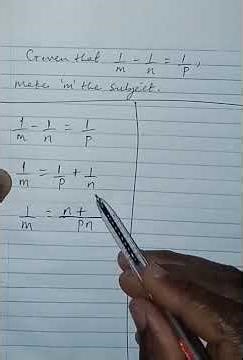 Given that 1/m - 1/n = 1/p,
make 'm' the subject.
1/m - 1/n = 1/p
1/m = 1/p + 1/n
1/m = n+ /pn